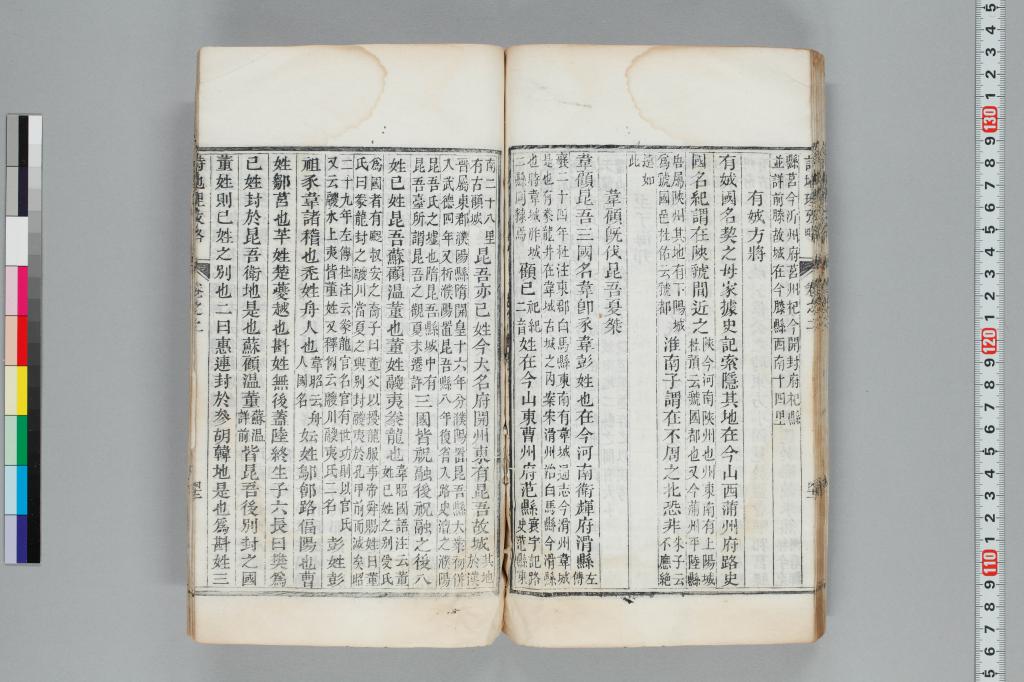 縣莒今沂州府莒州杞今開封府杞縣
並詳前滕故城在今滕縣西南十四里
有娀方將
有娀國名契之母家據史記索隱其地在今山西蒲州府路史
國名紀謂在陝虢間近之
陝今河南陝州也州東南有上陽城
杜預云虢國都也又今蒲州平陸縣
唐屬陝州其地有下陽城
為虢國邑杜佑云虢都
淮南子謂在不周之北恐非
朱子云
不應絶
遠如
此
韋顧旣伐昆吾夏桀
韋顧昆吾三國名韋卽豕韋彭姓也在今河南衛輝府滑縣
左傳
襄二十四年杜注東郡白馬縣東南有韋城通志今滑州韋城
是也有豢龍井在韋城古城之內案宋滑州治白馬縣今滑縣
也將韋城胙城
二縣同隸焉
顧己
二音
姓在今山東曹州府范縣
寰宇記路
史范縣東
南二十八里
有古顧城
昆吾亦己姓今大名府開州東有昆吾故城
其地
於漢
晉屬東郡濮陽縣隋開皇十六年分濮陽置昆吾縣大業初併
入武德四年又析濮陽置昆吾縣八年復省入路史澶之濮陽
昆吾氏之墟也隋昆吾縣城中有
昆吾臺所謂昆吾之觀夏末遷許
三國皆祝融後祝融之後八
姓己姓昆吾蘇顧温董也董姓鬷夷豢龍也
韋昭國語注云董
姓己姓之別受氏
為國者有飂叔安之裔子曰董父以擾龍服事帝舜賜姓曰董
氏曰豢龍封之鬷川當夏之興別封鬷夷於孔甲前而滅矣昭
二十九年左傳杜注云豢龍官名官有世功則以官氏
又云鬷水上夷皆董姓又釋例云鬷川鬷夷氏二名
彭姓彭
祖豕韋諸稽也禿姓舟人也
韋昭云舟
人國名
妘姓鄔鄶路偪陽也曹
姓鄒莒也羋姓楚夔越也斟姓無後蓋陸終生子六長曰樊為
己姓封於昆吾衛地是也蘇顧温董
蘇温
詳前
皆昆吾後別封之國
董姓則己姓之別也二曰惠連封於參胡韓地是也為斟姓三